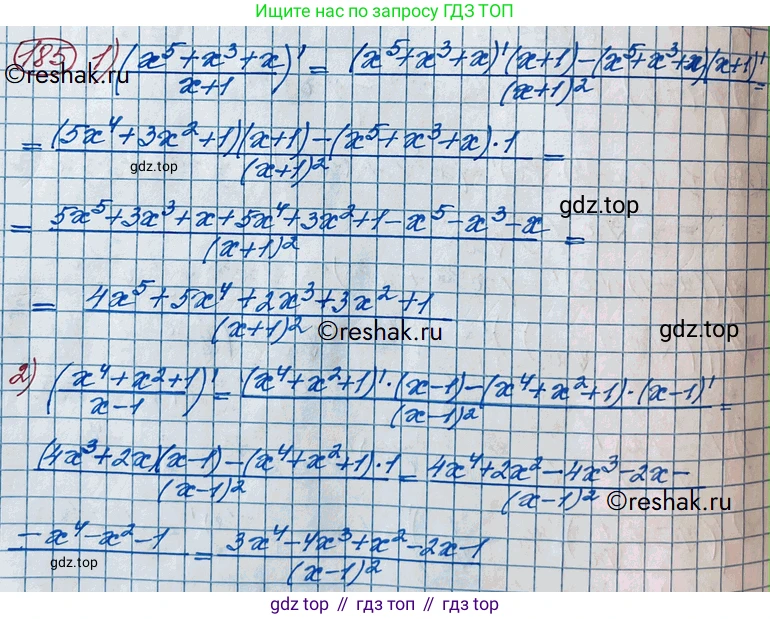 Ищите нас по запросу ГДЗ ТОП
185 1) ((x⁵+x³+x)/(x+1))' = ((x⁵+x³+x)'(x+1)-(x⁵+x³+x)(x+1)')/(x+1)² =
©reshak.ru
= ((5x⁴+3x²+1)(x+1)-(x⁵+x³+x)·1)/(x+1)² =
gdz.top
= (5x⁵+3x³+x+5x⁴+3x²+1-x⁵-x³-x)/(x+1)² =
gdz.top
= (4x⁵+5x⁴+2x³+3x²+1)/(x+1)²
©reshak.ru
gdz.top
2) ((x⁴+x²+1)/(x-1))' = ((x⁴+x²+1)'·(x-1)-(x⁴+x²+1)·(x-1)')/(x-1)² =
((4x³+2x)(x-1)-(x⁴+x²+1)·1)/(x-1)² = (4x⁴+2x²-4x³-2x-)/(x-1)²
©reshak.ru
-x⁴-x²-1 = (3x⁴-4x³+x²-2x-1)/(x-1)²
gdz.top
gdz top // гдз топ // gdz top